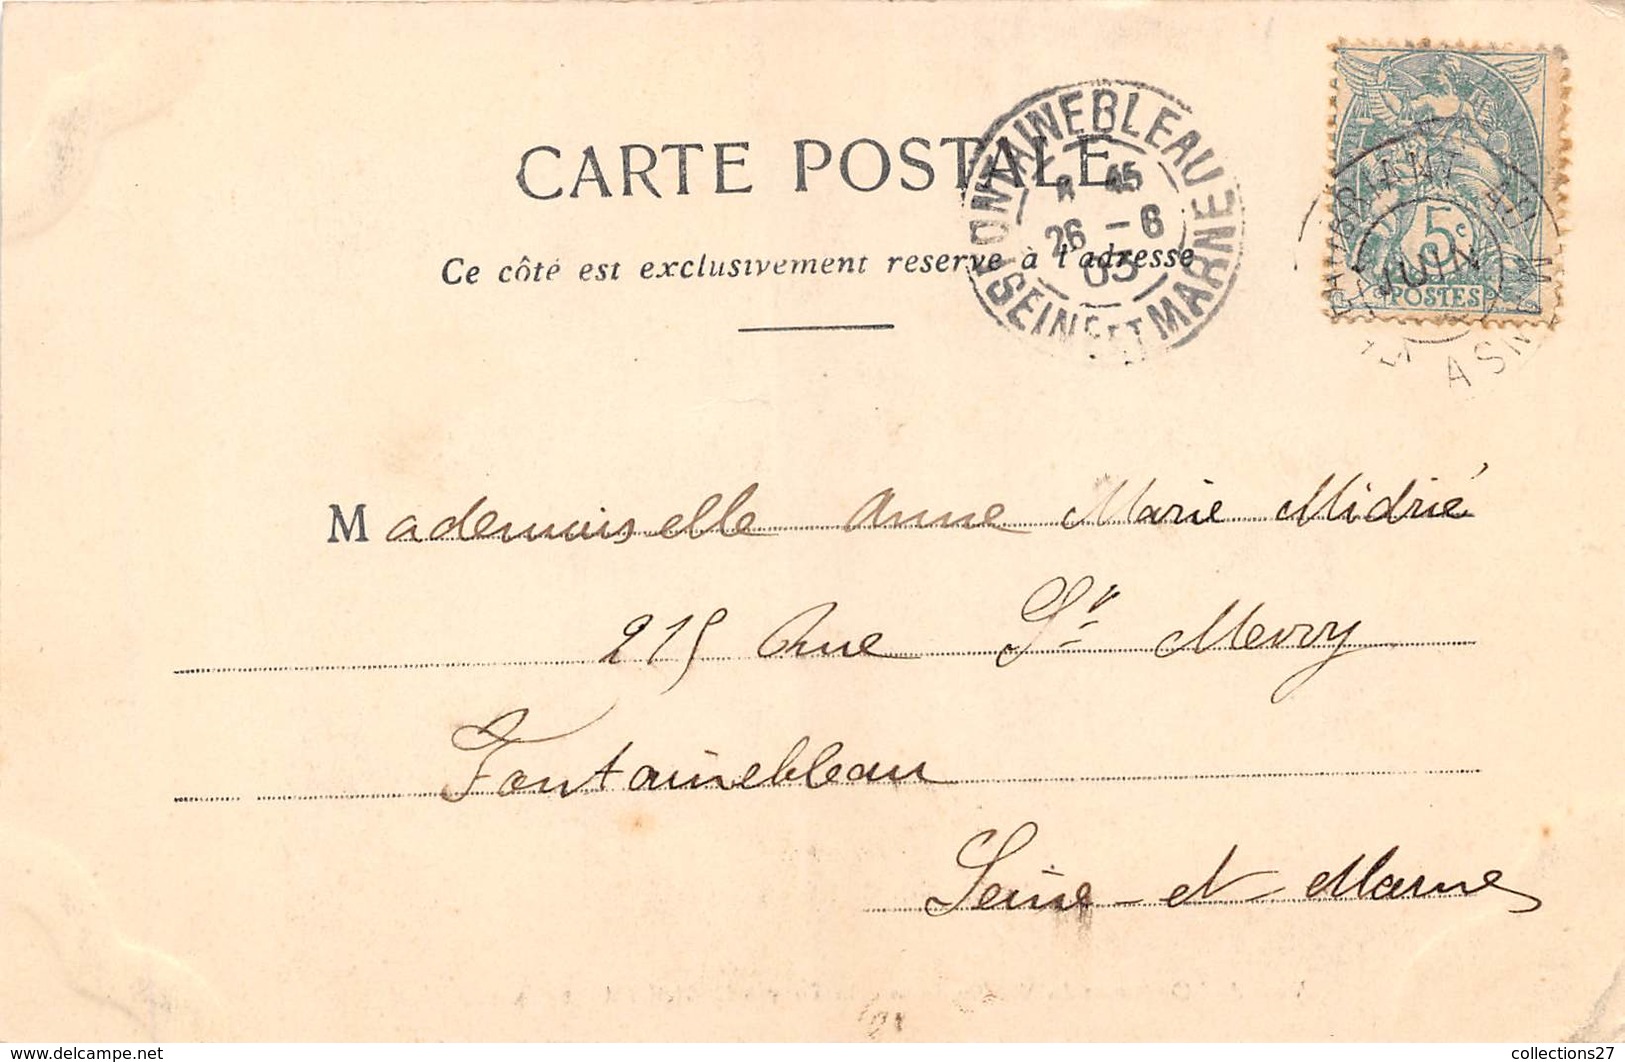 CARTE POSTALE
Ce côté est exclusivement reserve à l'adresse
FONTAINEBLEAU
45
26 - 6
03
SEINE ET MARNE
5c
POSTES
JUIN
Mademoiselle Anne Marie Midrié
215 Rue St Merry
Fontainebleau
Seine-et Marne
www.delcampe.net
collections27